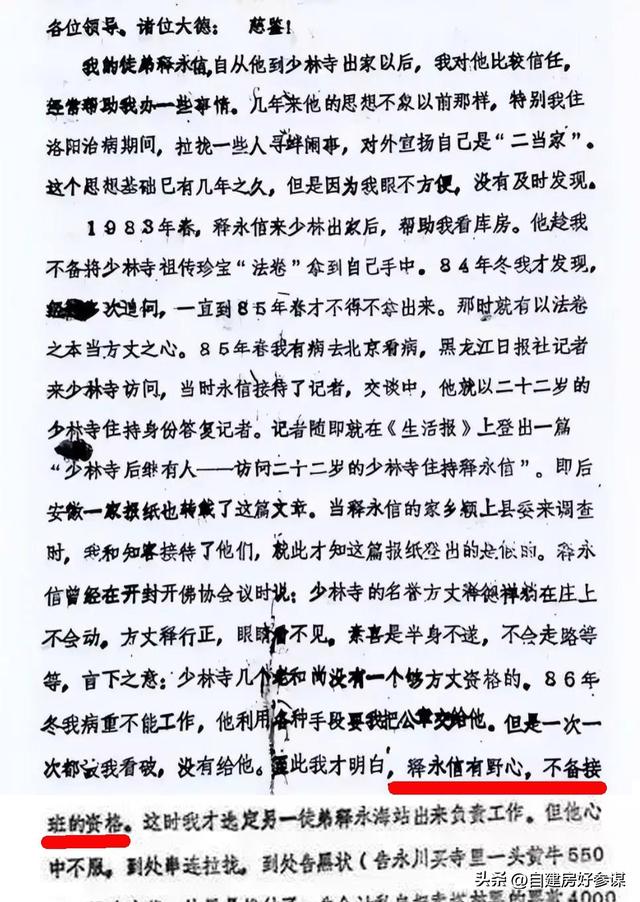 各位领导。诸位大德： 慈鉴！
我的徒弟释永信，自从他到少林寺出家以后，我对他比较信任，
经常帮助我办一些事情。几年来他的思想不象以前那样，特别我住
洛阳治病期间，拉拢一些人寻衅闹事，对外宣扬自己是“二当家”。
这个思想基础已有几年之久，但是因为我眼不方便，没有及时发现。
1983年春，释永信来少林出家后，帮助我看库房。他趁我
不备将少林寺祖传珍宝“法卷”拿到自己手中。84年冬我才发现，
经多次追问，一直到85年春才不得不拿出来。那时就有以法卷
之本当方丈之心。85年春我有病去北京看病，黑龙江日报社记者
来少林寺访问，当时永信接待了记者，交谈中，他就以二十二岁的
少林寺住持身份答复记者。记者随即就在《生活报》上登出一篇
“少林寺后继有人——访问二十二岁的少林寺住持释永信”。即后
安徽一家报纸也转载了这篇文章。当释永信的家乡颍上县委来调查
时，我和知客接待了他们，就此才知这篇报纸登出的是假的。释永
信曾经在开封开佛协会议时说：少林寺的名誉方丈释德禅躺在庄上
不会动。方丈释行正，眼睛看不见。素喜是半身不遂，不会走路等
等，言下之意：少林寺几个老和尚没有一个够方丈资格的。86年
冬我病重不能工作，他利用各种手段要我把公章交给他。但是一次一
次都被我看破，没有给他。至此我才明白，释永信有野心，不备接
班的资格。这时我才选定另一徒弟释永海站出来负责工作。但他心
中不服。到处串连拉拢，到处告黑状（告永川买寺里一头黄牛550
4000
头条 @自建房好参谋